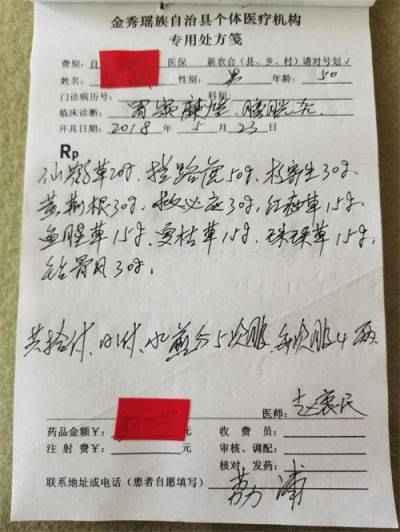 金秀瑶族自治县个体医疗机构
专用处方笺
费别：自 医保 新农合（县、乡、村）请对号划√
姓名： 性别：男 年龄：50
门诊病历号： 科别：
临床诊断：
开具日期：2018年5月23日
Rp
仙鹤草20g，挡路虎50g，杉寄生30g，
黄荆根30g，救必应30g，红药草15g，
鱼腥草15g，夏枯草15g，珠珠草15g，
钻骨风30g。
共拾付，日1付，水煎分5次服，每次服4两
医师：赵
药品金额￥： 元 收费员：
注射费￥： 元 审核、调配：
核对、发药：
联系地址或电话（患者自愿填写）